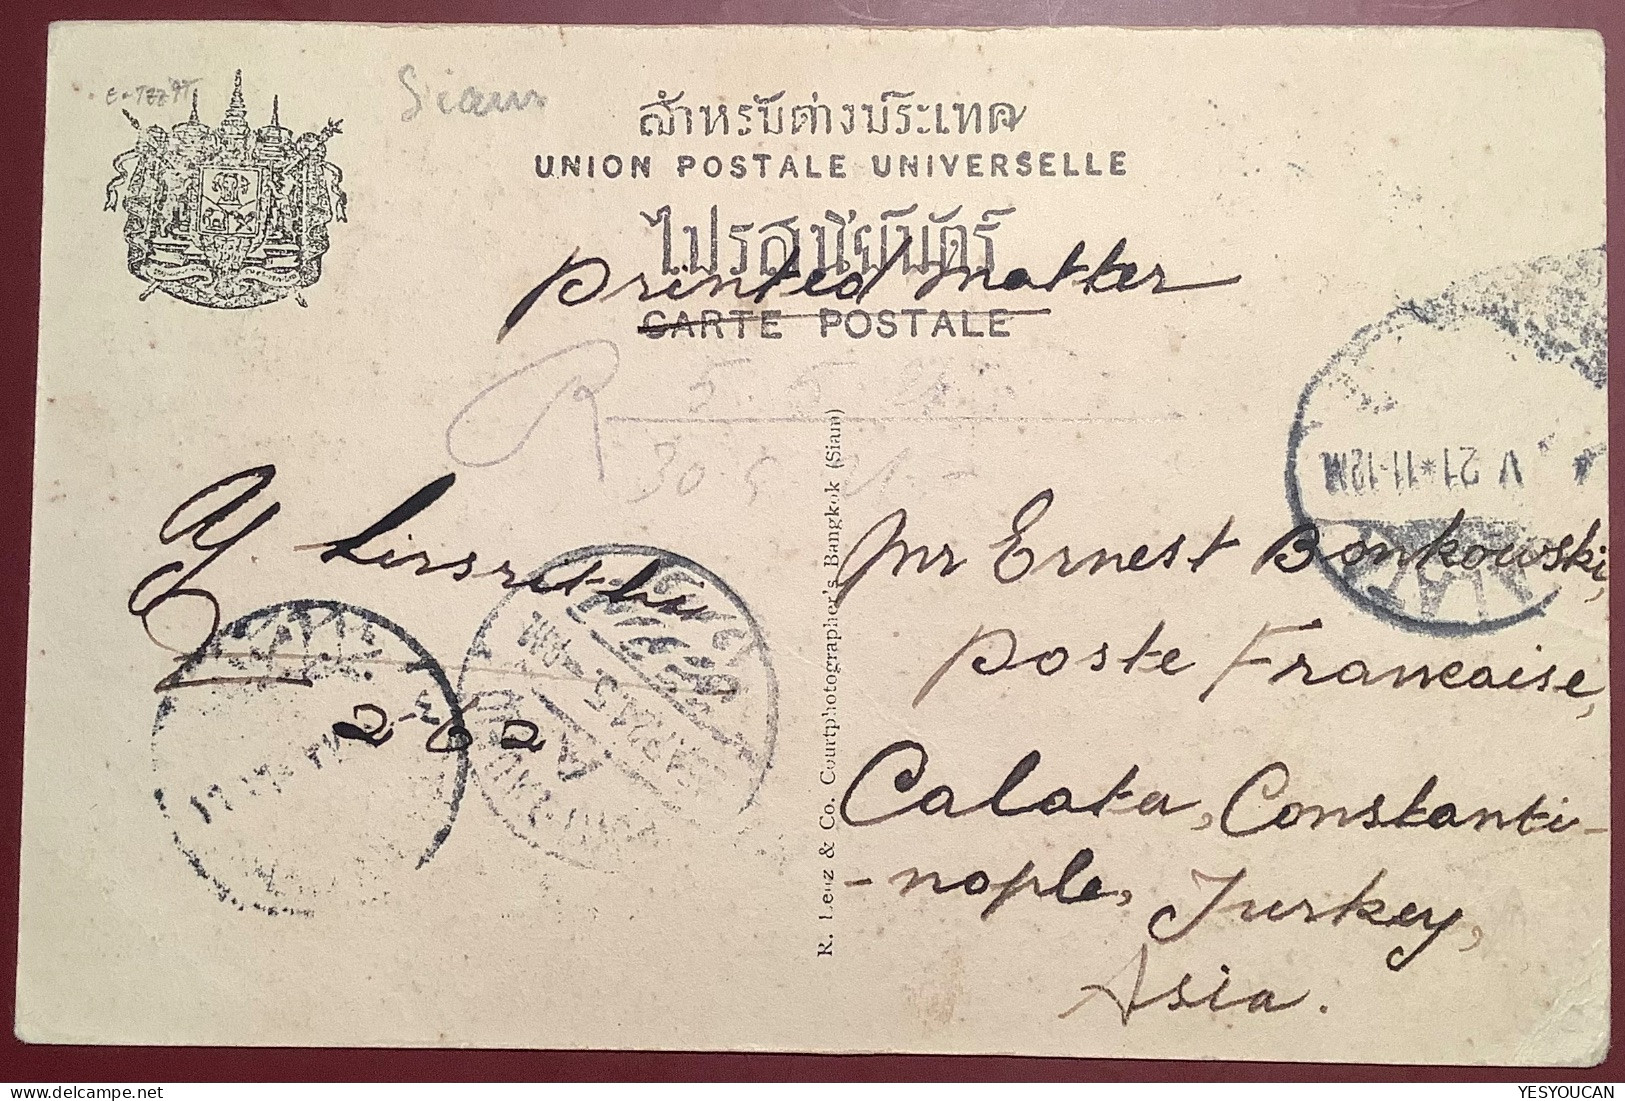 Siam
สำหรับต่างประเทศ
UNION POSTALE UNIVERSELLE
ไปรสนีย์บัตร์
printed matter
CARTE POSTALE
R 5.5.21
30.5.21.-
V 21*11-12M
Mr Ernest Bonkowski,
Poste Francaise,
Calata, Constanti-
-nople, Turkey,
Asia.
2-62
R. Lenz & Co. Courtphotographer's Bangkok (Siam)
YESYOUCAN